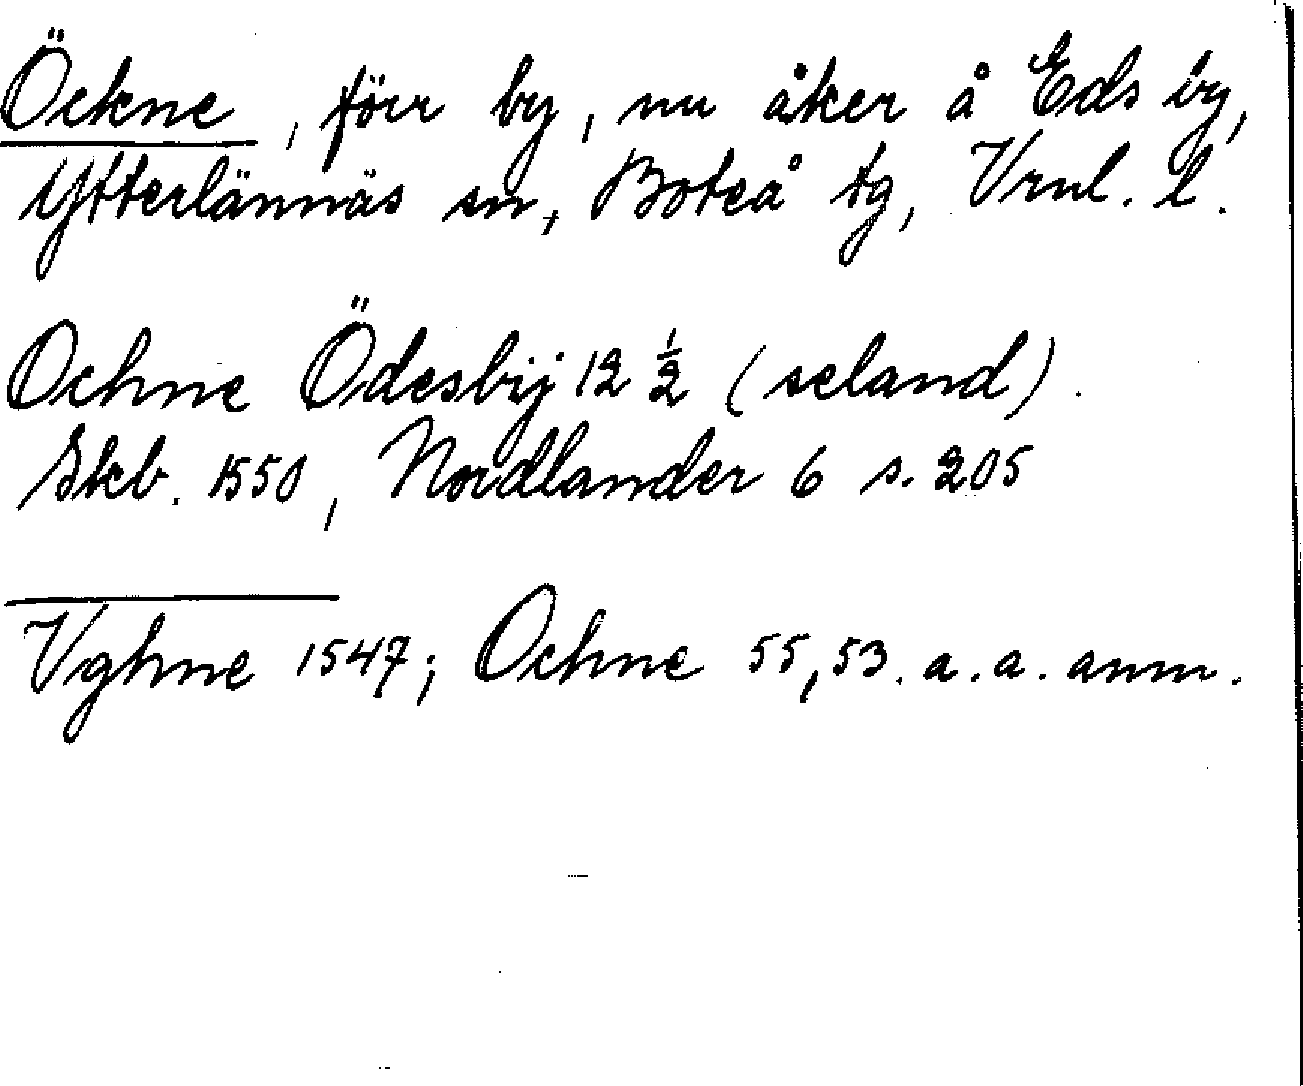 Öckne, förr by, nu åker å Eds by,
Ytterlännäs sn, Boteå tg, Vrnl. l.
Ochne Ödesbÿ 12 ½ (seland).
Skb. 1550, Nordlander 6 s. 205
Vghne 1547; Ochne 55, 53. a. a. anm.